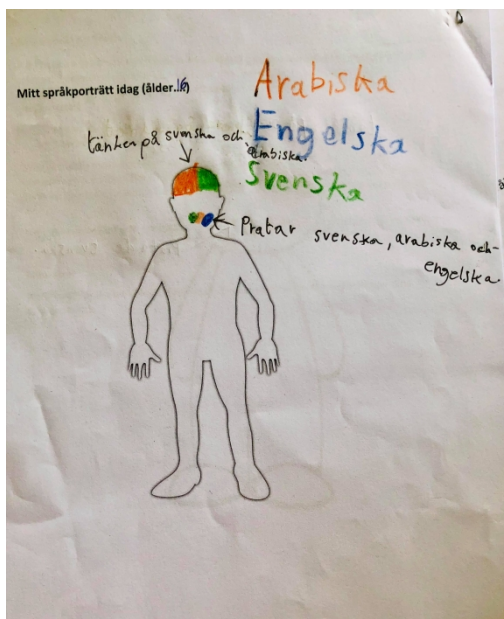 Mitt språkporträtt idag (ålder.16)
Arabiska
Engelska
Svenska
tänker på svenska och arabiska.
Pratar svenska, arabiska och-
engelska.